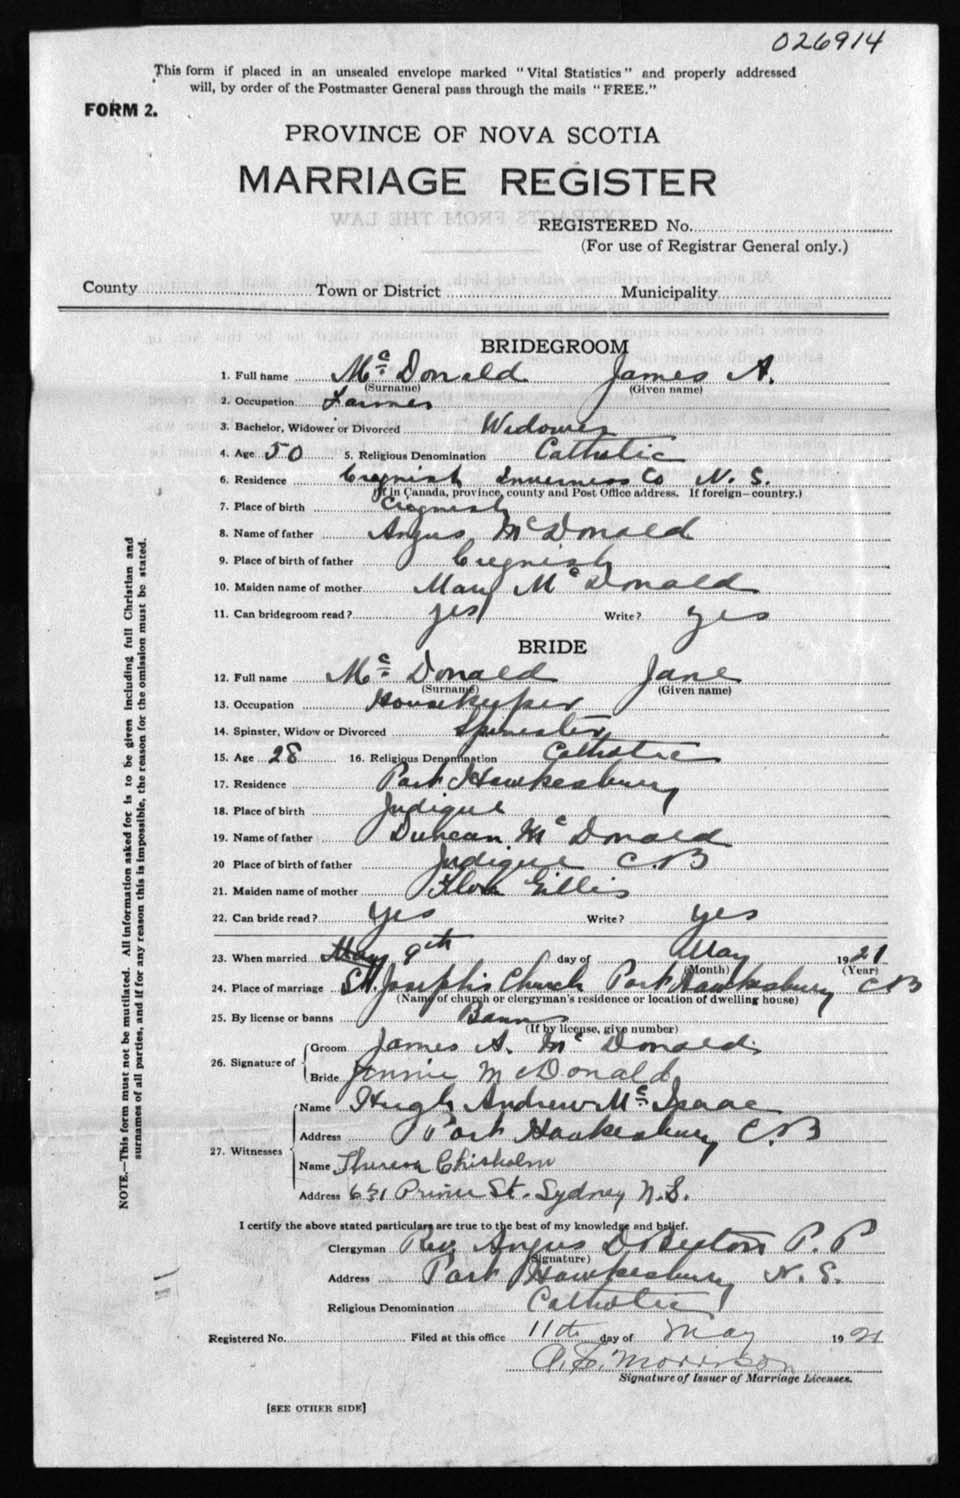 026914
This form if placed in an unsealed envelope marked "Vital Statistics" and properly addressed
will, by order of the Postmaster General pass through the mails "FREE."
FORM 2.
PROVINCE OF NOVA SCOTIA
MARRIAGE REGISTER
REGISTERED No.
(For use of Registrar General only.)
County Town or District Municipality
BRIDEGROOM
1. Full name Mc Donald James A.
(Surname) (Given name)
2. Occupation Farmer
3. Bachelor, Widower or Divorced Widower
4. Age 50 5. Religious Denomination Catholic
6. Residence Cregnish Inverness Co N. S.
(If in Canada, province, county and Post Office address. If foreign—country.)
7. Place of birth Cregnish
8. Name of father Angus McDonald
9. Place of birth of father Cregnish
10. Maiden name of mother Mary McDonald
11. Can bridegroom read? yes Write? yes
BRIDE
12. Full name Mc Donald Jane
(Surname) (Given name)
13. Occupation Housekeeper
14. Spinster, Widow or Divorced Spinster
15. Age 28 16. Religious Denomination Catholic
17. Residence Port Hawkesbury
18. Place of birth Judique
19. Name of father Duncan McDonald
20 Place of birth of father Judique C.B
21. Maiden name of mother Flora Gillis
22. Can bride read? yes Write? yes
23. When married May 9th day of May 1921
(Month) (Year)
24. Place of marriage St. Joseph's Church Port Hawkesbury C B
(Name of church or clergyman's residence or location of dwelling house)
25. By license or banns Banns
(If by license, give number)
26. Signature of Groom James A. McDonald
Bride Jennie McDonald
27. Witnesses Name Hugh Andrew McIsaac
Address Port Hawkesbury C.B
Name Theresa Chisholm
Address 631 Prince St. Sydney N.S.
I certify the above stated particulars are true to the best of my knowledge and belief.
Clergyman Rev Angus P. P
(Signature)
Address Port Hawkesbury N. S.
Religious Denomination Catholic
Registered No. Filed at this office 11th day of May 1921
Morrison
Signature of Issuer of Marriage Licenses.
[SEE OTHER SIDE]
NOTE.—This form must not be mutilated. All information asked for is to be given including full Christian and
surnames of all parties, and if for any reason this is impossible, the reason for the omission must be stated.